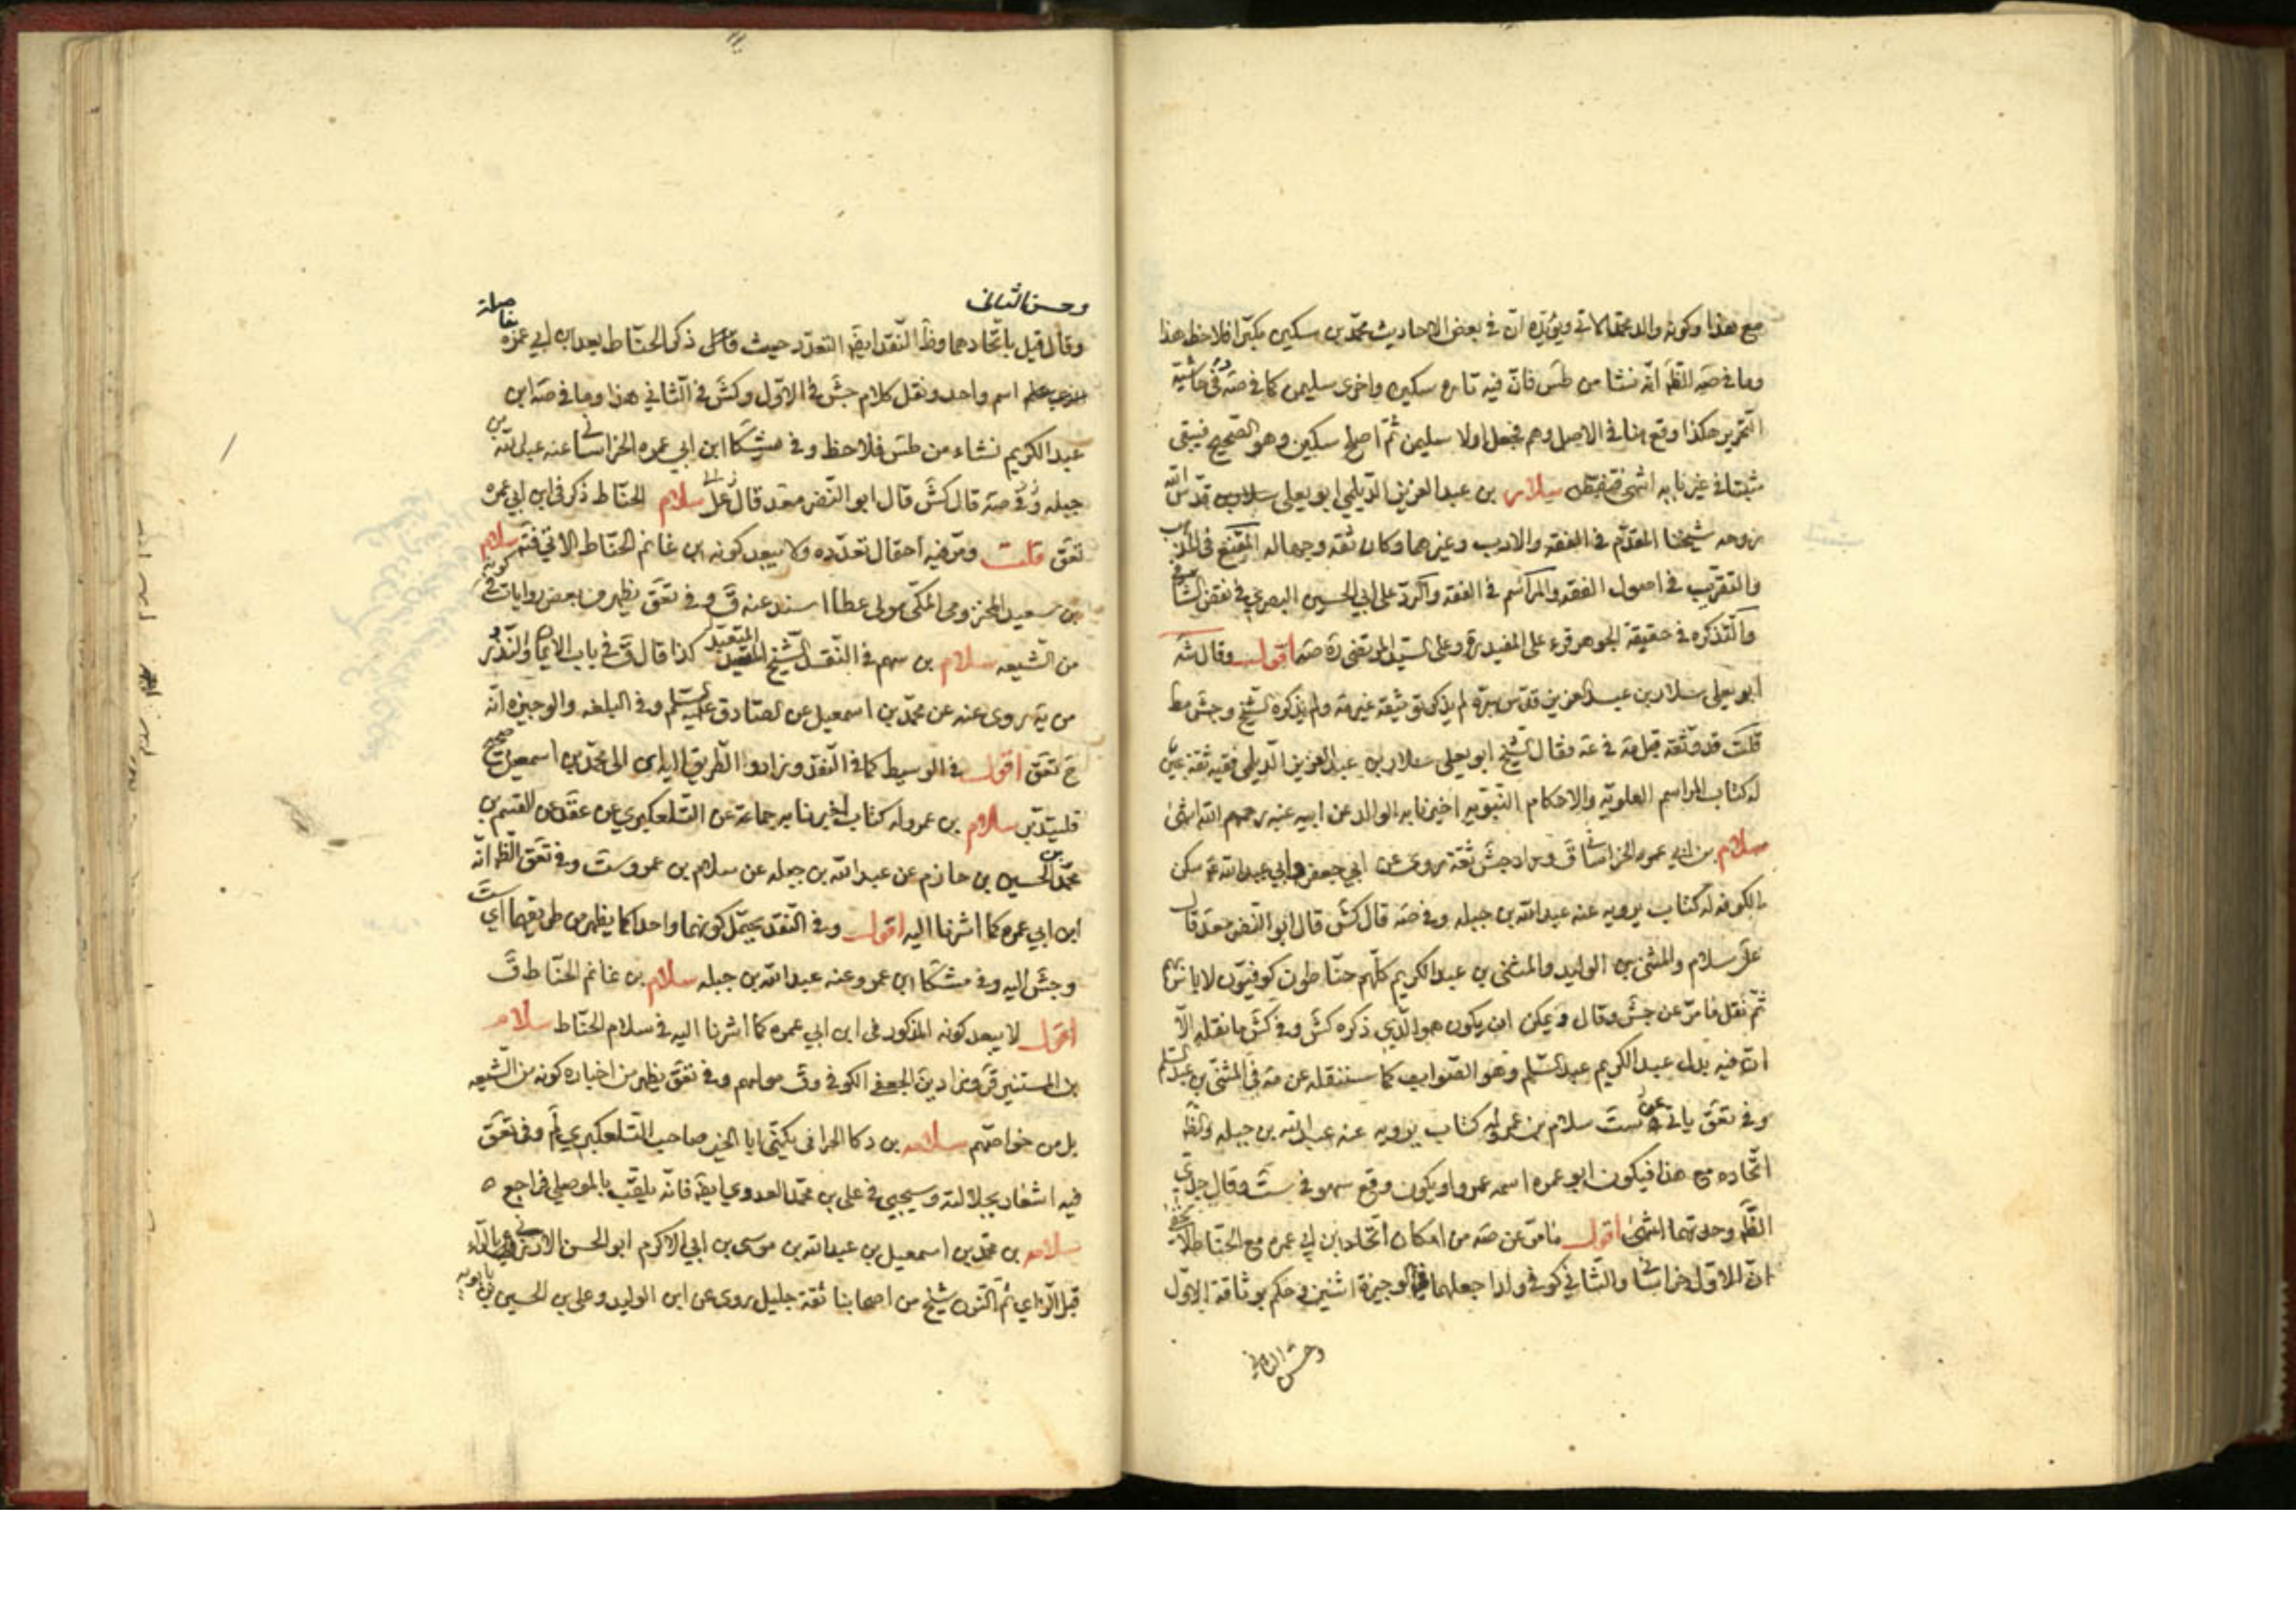 مع هذا وكونه والد محمد كما تى ويؤيده ان فى بعض الاحاديث محمد بن سكين مكبرا فلاحظ هذا
وما فى صه الظ انه نشا من طس فان فيه تاره سكين واخرى سليمن كما فى صه وفى حاشية
التحرير هكذا وقع هنا فى الاصل وهم فجعل اولا سليمن ثم اصلح سكين وهو الصحيح فبقى
مثبتا فى غير بابه انتهى سلار بن عبد العزيز الديلمى ابو يعلى سلار قدس الله
روحه شيخنا المقدم فى الفقه والادب وغيرهما وكان ثقه وجها له المقنع فى المذهب
والتقريب فى اصول الفقه والمراسم فى الفقه والرد على ابى الحسين البصرى فى نقض الشافى
والتذكره فى حقيقة الجوهر قرء على المفيد ره وعلى السيد المرتضى ره صه اقول وقال شه
ابو يعلى سلار بن عبد العزيز قدس سره لم يذكر توثيقه غير مة ولم يذكره الشيخ وجش مط
قلت قد وثقه قبل مة فى عه فقال الشيخ ابو يعلى سلار بن عبد العزيز الديلمى فقيه ثقة عين
له كتاب المراسم العلوية والاحكام النبويه اخبرنا به الوالد عن ابيه عنه رحمهم الله انتهى
سلام بن ابى عمره الخراسانى ق وزاد جش ثقة روى عن ابى جعفر وابى عبد الله ع سكن
الكوفه له كتاب يرويه عنه عبد الله بن جبله وفى صه قال كش قال ابو النضر محمد قال
على سلام والمثنى بن الوليد والمثنى بن عبد الكريم كلهم حناطون كوفيون لا باس بهم
ثم نقل ما مر عن جش وقال ويمكن ان يكون هو الذى ذكره كش وفى كش ما نقله الا
ان فيه بدل عبد الكريم عبد السلم وهو الصواب كما سننقله عن مة فى المثنى بن عبد السلم
وفى تعق ياتى عن ست سلام بن عمرو له كتاب يرويه عنه عبد الله بن جبله والظ
اتحاده مع هذا فيكون ابو عمره اسمه عمرو او يكون وقع سهو فى ست وقال جدى
الظ وحدتهما انتهى اقول ما مر عن صه من امكان اتحاد ابن ابى عمره مع الحناط
ان الاول خراسانى والثانى كوفى ولذا جعلهما فى الوجيزة اثنين وحكم بوثاقة الاول
وحسن الثانى
وحسن الثانى
وقال قيل باتحادهما وظ النقد ايضا التعدد حيث قال ذكر الحناط بعد ابن ابى عمره
اسم واحد ونقل كلام جش فى الاول وكش فى الثانى هذا وما فى صه ابن
عبد الكريم نشاء من طس فلاحظ وفى مشكا ابن ابى عمره الخراسانى عنه عبد الله بن
جبله وفى صه قال كش قال ابو النضر محمد قال على سلام الحناط ذكر فى ابن ابى عمره
تعق قلت ومر فيه احتمال تعدده ولا يبعد كونه ابن غانم الحناط الاتى فتم سلام
بن سعيد المخزومى المكى مولى عطا اسند عنه ق وفى تعق يظهر من بعض رواياته كونه
من الشيعه سلام بن سهم فى النقد الشيخ المتعبد كذا قال ق فى باب الايمان والنذور
من يه روى عنه عن محمد بن اسمعيل عن الصادق عليه السلم وفى البلغه والوجيزه انه
ح تعق اقول فى الوسيط كما فى النقد وزاد والطريق اليه الى محمد بن اسمعيل صحيح
فليتدبر سلام بن عمرو له كتاب اخبرنا به جماعة عن التلعكبرى عن عقد عن القسم بن
محمد بن الحسين بن حازم عن عبد الله بن جبله عن سلام بن عمرو ست وفى تعق الظ انه
ابن ابى عمره كما اشرنا اليه اقول وفى النقد يحتمل كونهما واحدا كما يظهر من طريقهما اى ست
وجش اليه وفى مشكا ابن عمرو عنه عبد الله بن جبله سلام بن غانم الحناط ق
اقول لا يبعد كونه المذكور فى ابن ابى عمره كما اشرنا اليه فى سلام الحناط سلام
بن المستنير قر وزاد ين الجعفى الكوفى وق مولاهم وفى تعق يظهر من اخباره كونه من الشيعه
بل من خواصهم سلامه بن دكا الحرانى يكنى ابا الخير صاحب التلعكبرى لم وفى تعق
فيه اشعار بجلالته وسيجيى فى على بن محمد العدوى ايضا فانه يلقب بالموصلى فراجع
سلامه بن محمد بن اسمعيل بن عبد الله بن موسى بن ابى الاكرم ابو الحسن الارزنى بالراء
قبل الزاى ثم النون شيخ من اصحابنا ثقة جليل روى عن ابن الوليد وعلى بن الحسين بن بابويه